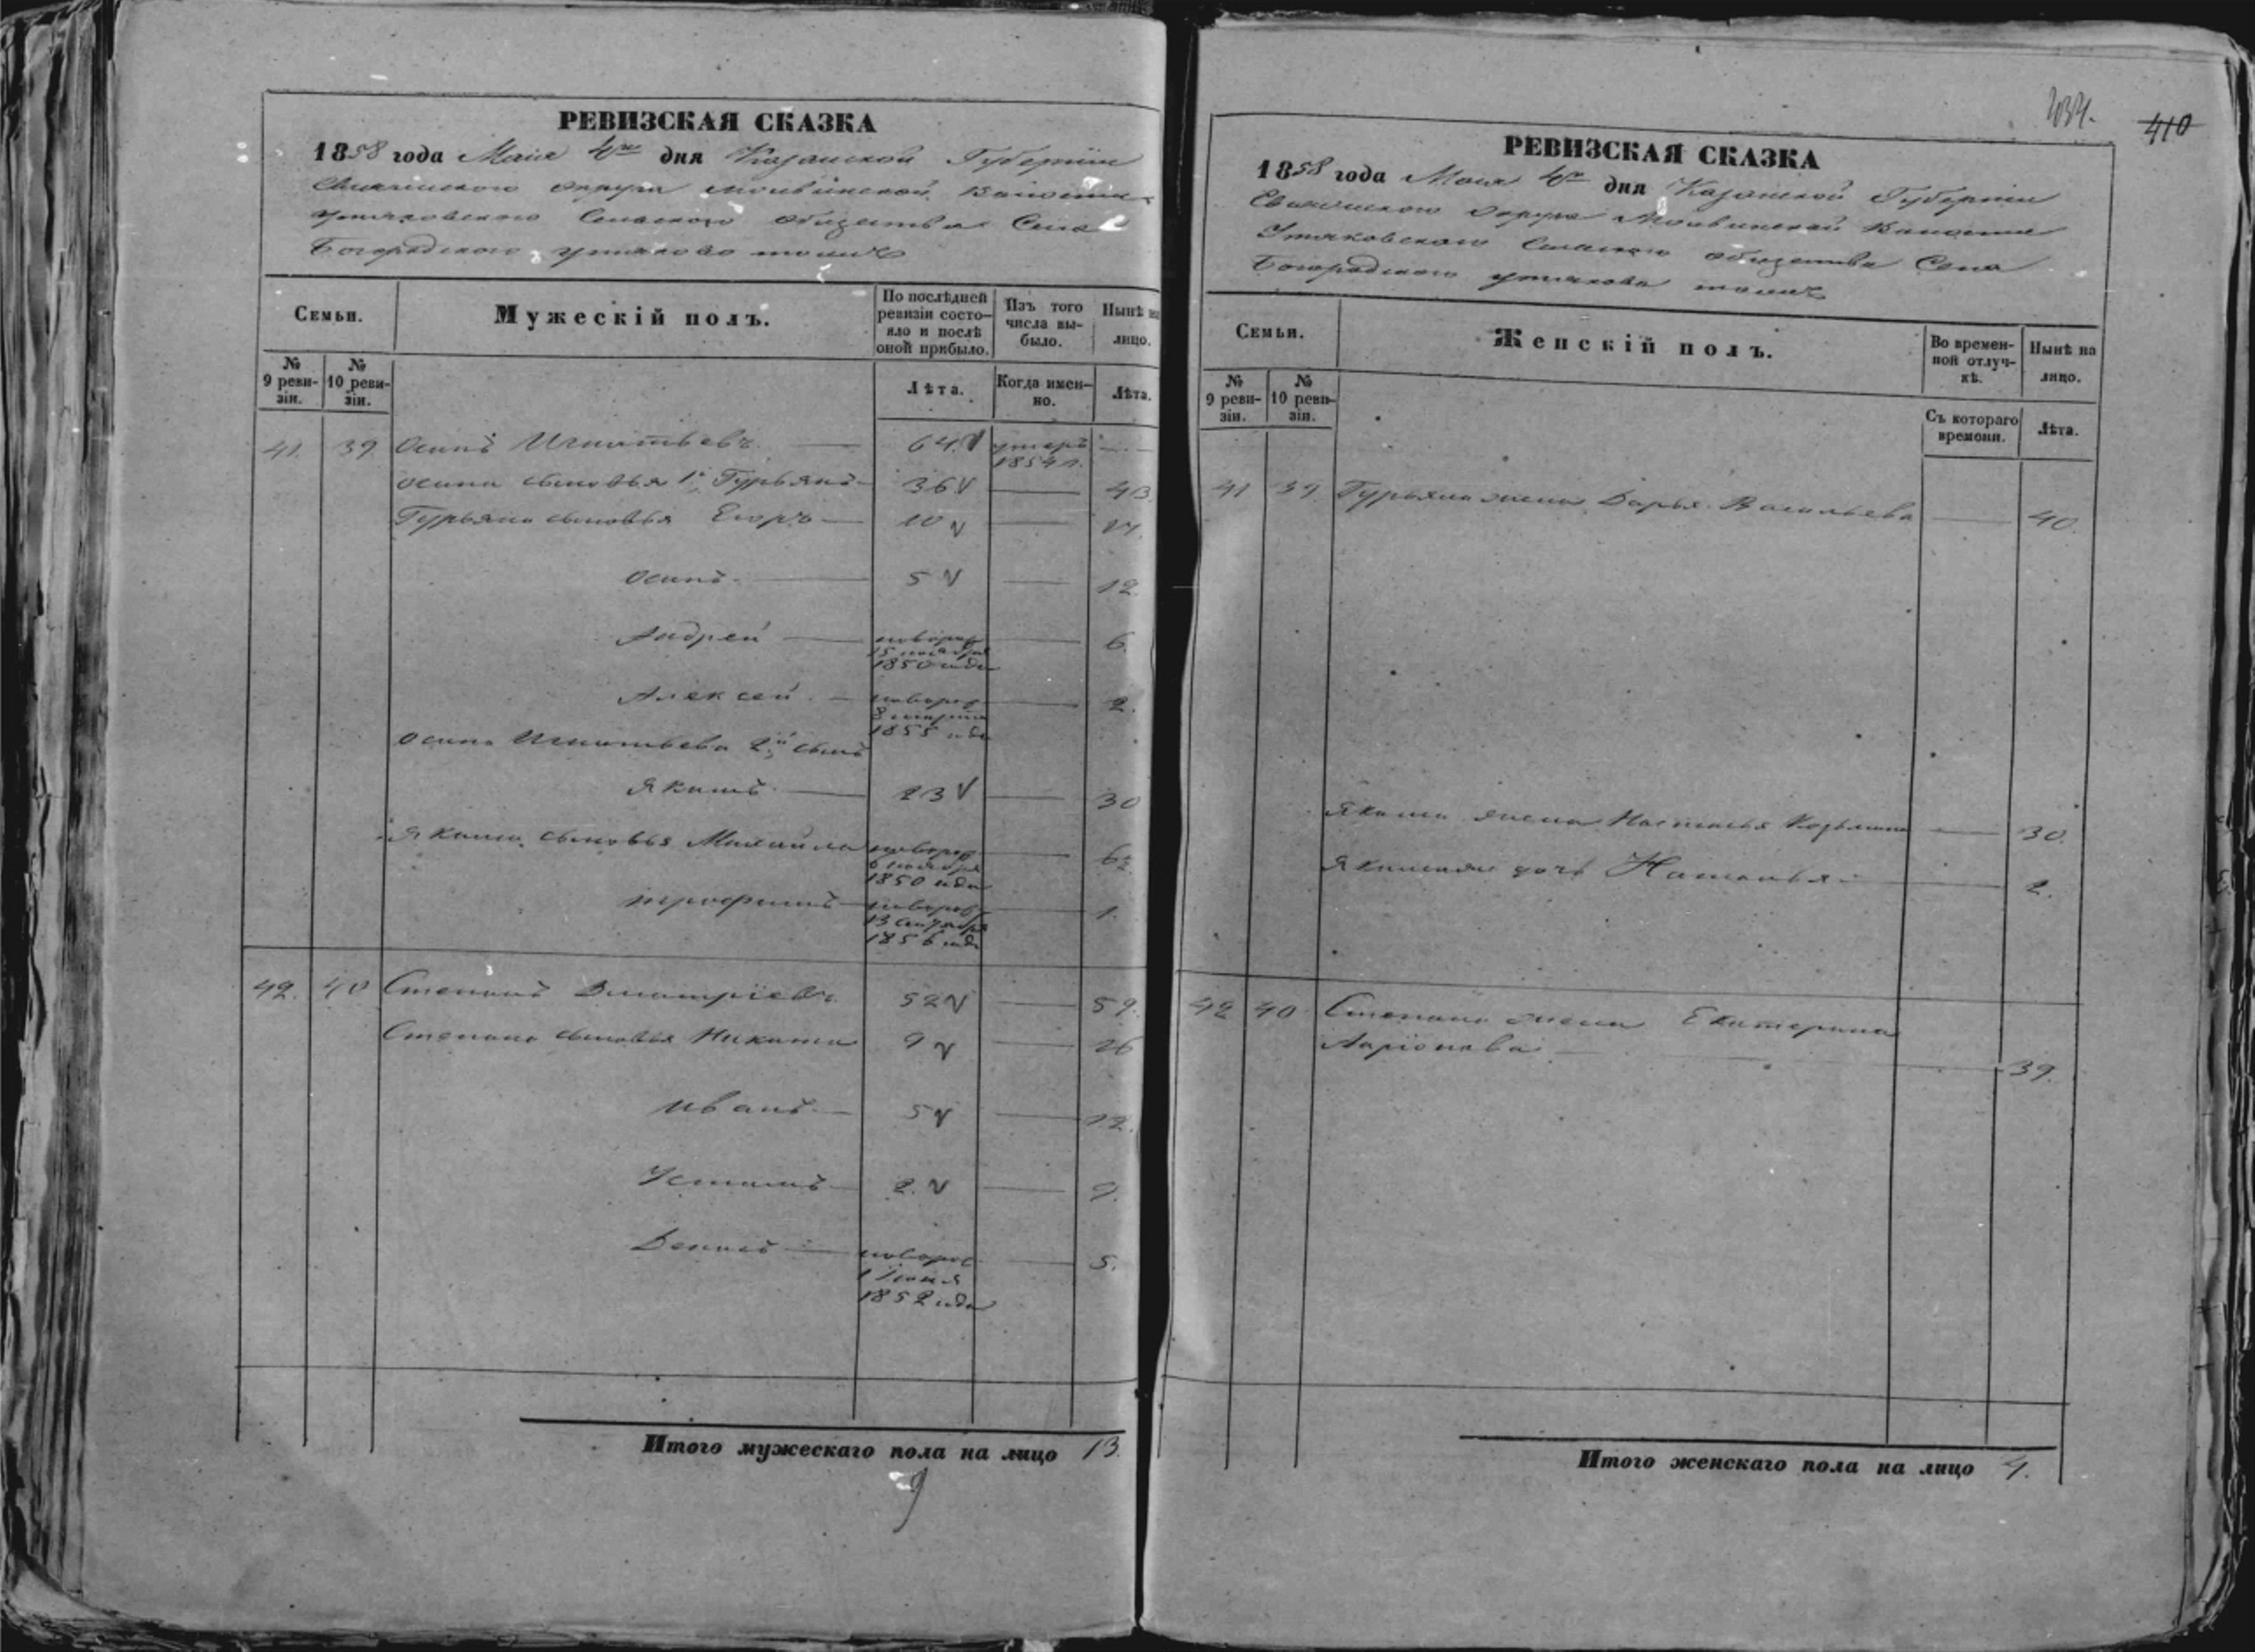 РЕВИЗСКАЯ СКАЗКА
1858 года Мая 4го дня Казанской Губернии
Свияжского округа Волости
Утяковского Сельского общества Села
Богородского Утяково тожъ
Семьи.
Мужескій полъ.
По послѣдней ревизіи состояло и послѣ оной прибыло.
Изъ того числа выбыло.
Нынѣ на лицо.
№ 9 ревизіи.
№ 10 ревизіи.
Лѣта.
Когда именно.
Лѣта.
41. 39 Осипъ Игнатьевъ 64 умеръ 1854 г.
Осипа сыновья 1й Гурьянъ 36 43
Гурьяна сыновья Егоръ 10
Осипъ 5 12
Андрей новорож 15 ноября 1850 года 6.
Алексей новорож 8 марта 1855 года 2.
Осипа Игнатьева 2й сынъ
Якимъ 23 30
Якима сыновья Михайла новорож 6 ноября 1850 года
Трофимъ новорож 13 сентября 1856 года 1.
42. 40 Степанъ Дмитріевъ 52 59.
Степана сыновья Никита 9 26
Иванъ 5 12.
Устинъ 2. 9.
Денисъ новорож 1 Іюня 1852 года 5.
Итого мужескаго пола на лицо 13.
9
434.
410
РЕВИЗСКАЯ СКАЗКА
1858 года Мая 4го дня Казанской Губернии
Свияжского округа Волости
Утяковского Сельского общества Села
Богородского Утяково тожъ
Семьи.
Женскій полъ.
Во временной отлучкѣ.
Нынѣ на лицо.
№ 9 ревизіи.
№ 10 ревизіи.
Съ котораго времени.
Лѣта.
41 39. Гурьяна жена Дарья Васильева 40.
Якима жена Настасья Козьмина 30.
дочь Наталья 2.
42 40 Степана жена Екатерина
Ларіонова 39.
Итого женскаго пола на лицо 4.